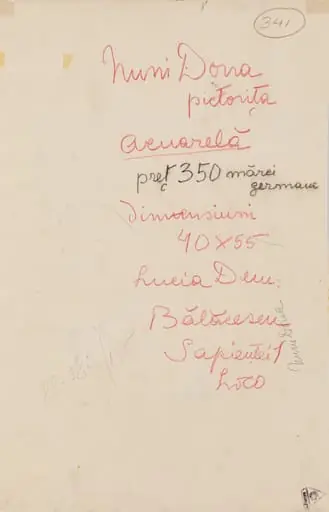 341
Nuni Dona
pictorița
acuarelă
preț 350 mărci
germane
Dimensiuni
40x55
Lucia Dem.
Bălăcescu
Sapienței 1
Loco
Nuni Dona